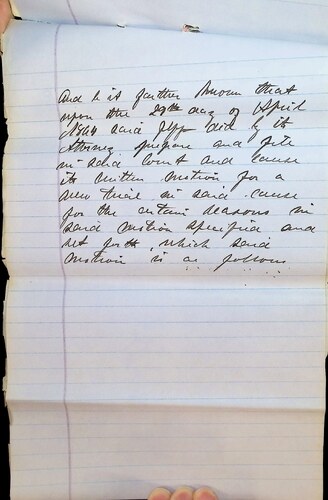 And be it further known that
upon the 29th day of April
said Plff did by its
Attorney prepare and file
in said Court and cause
its written motion for a
new trial in said cause
for the certain reasons in
said motion specified and
set forth, which said
motion is as follows